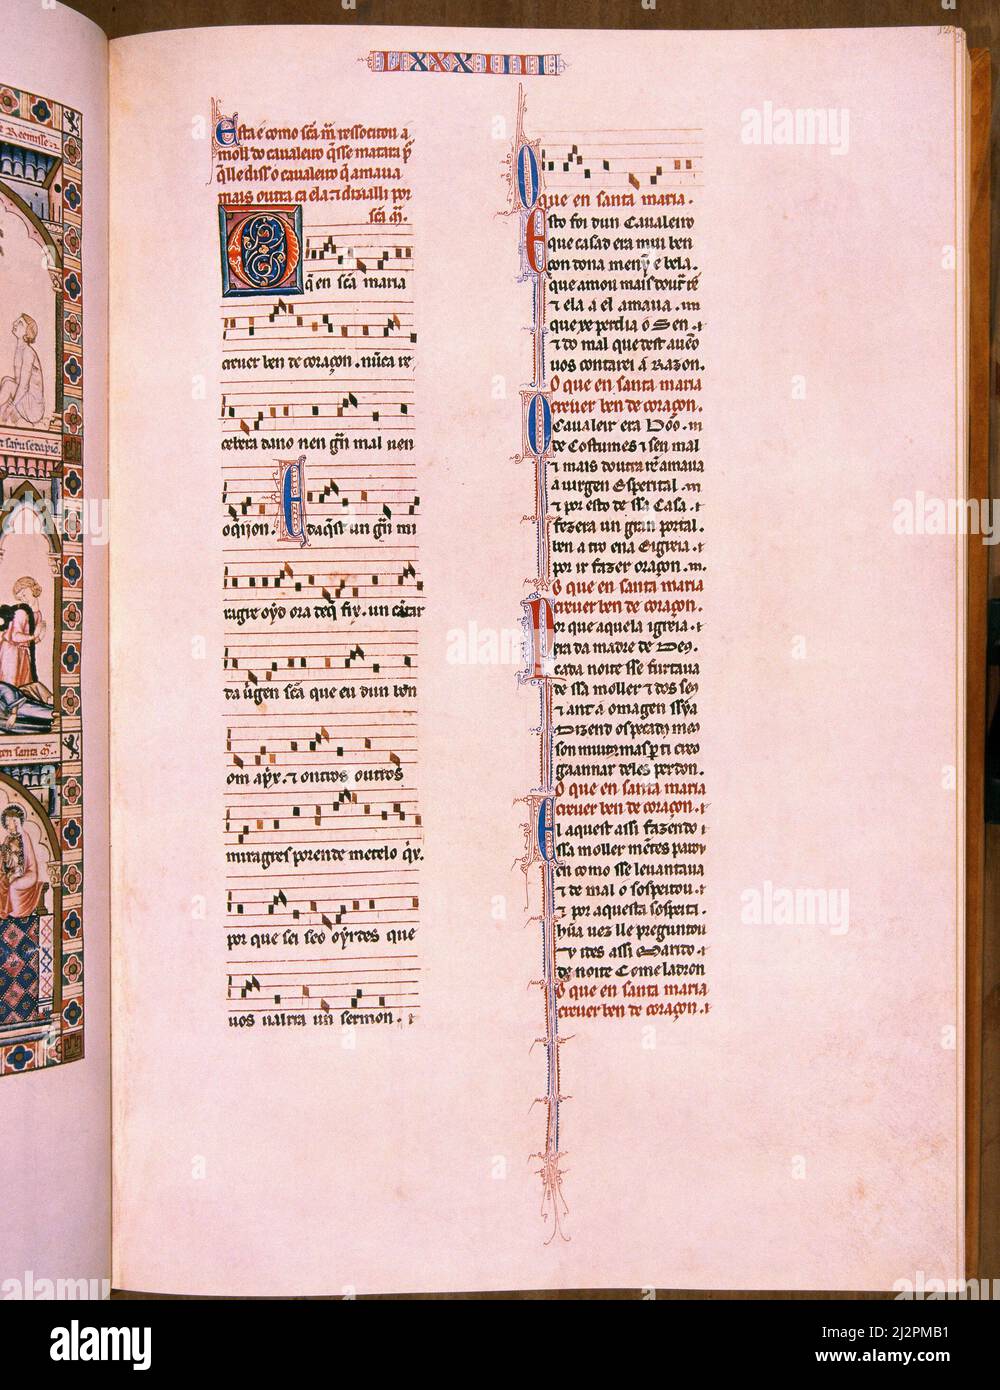 LXXXIIII
Esta é como sc̃a m̃ ressocitou a
moll̃ do cavaleiro q̃sse matara p̃
q̃lle diss o cavaleiro q̃ amava
mais outra ca ela ⁊ dizialli por
sc̃a m̃.
O q̃ en sc̃a maria
crever ben de coraçon. nũca re
ceberá dano nen grã mal nen
oqijon. E daq̃st un grã mi
ragre oyd ora deq̃ fix. un cãtar
da uirgen sc̃a que eu dun bon
om aprix. ⁊ ontros outros
miragres porende metelo q̃ix.
por que sei seo oyrdes que
vos ualrrá un sermon. ⁊
O que en santa maria.
Esto foi dun Cavaleiro
que casad era mui ben
con dona menỹ e bela.
que amou mais doutr rẽ
⁊ ela a el amava. m
que xe perdia o Sen. ⁊
⁊ do mal que dest aueo
uos contarei a Razon.
O que en santa maria
creuer ben de coraçon.
O Caualeir era bõo. m
de Costumes ⁊ sen mal
⁊ mais doutra rẽ amaua
a uirgen Esperital. m
⁊ por esto de ssa Casa. ⁊
fezera un gran portal.
ben atro ena Eigreia. ⁊
por ir fazer oraçon. m.
O que en santa maria
creuer ben de coraçon.
Por que aquela igreia. ⁊
era da madre de Deus
cada noite sse furtaua
de ssa moller ⁊ dos seus
⁊ ant a omagen ssiya
Dizend os pecados meus
son muitos mas per ti creo
gaannar deles perdon.
O que en santa maria
creuer ben de coraçon.
El aquest assi fazendo ⁊
ssa moller mẽtes parou
en como sse leuantaua
⁊ de mal o sospeitou. ⁊
⁊ por aquesta sospeita.
hũa uez lle preguntou
u ides assi Marido. ⁊
de noite Come ladron
O que en santa maria
creuer ben de coraçon. ⁊
alamy
Image ID: J22PMB1
www.alamy.com